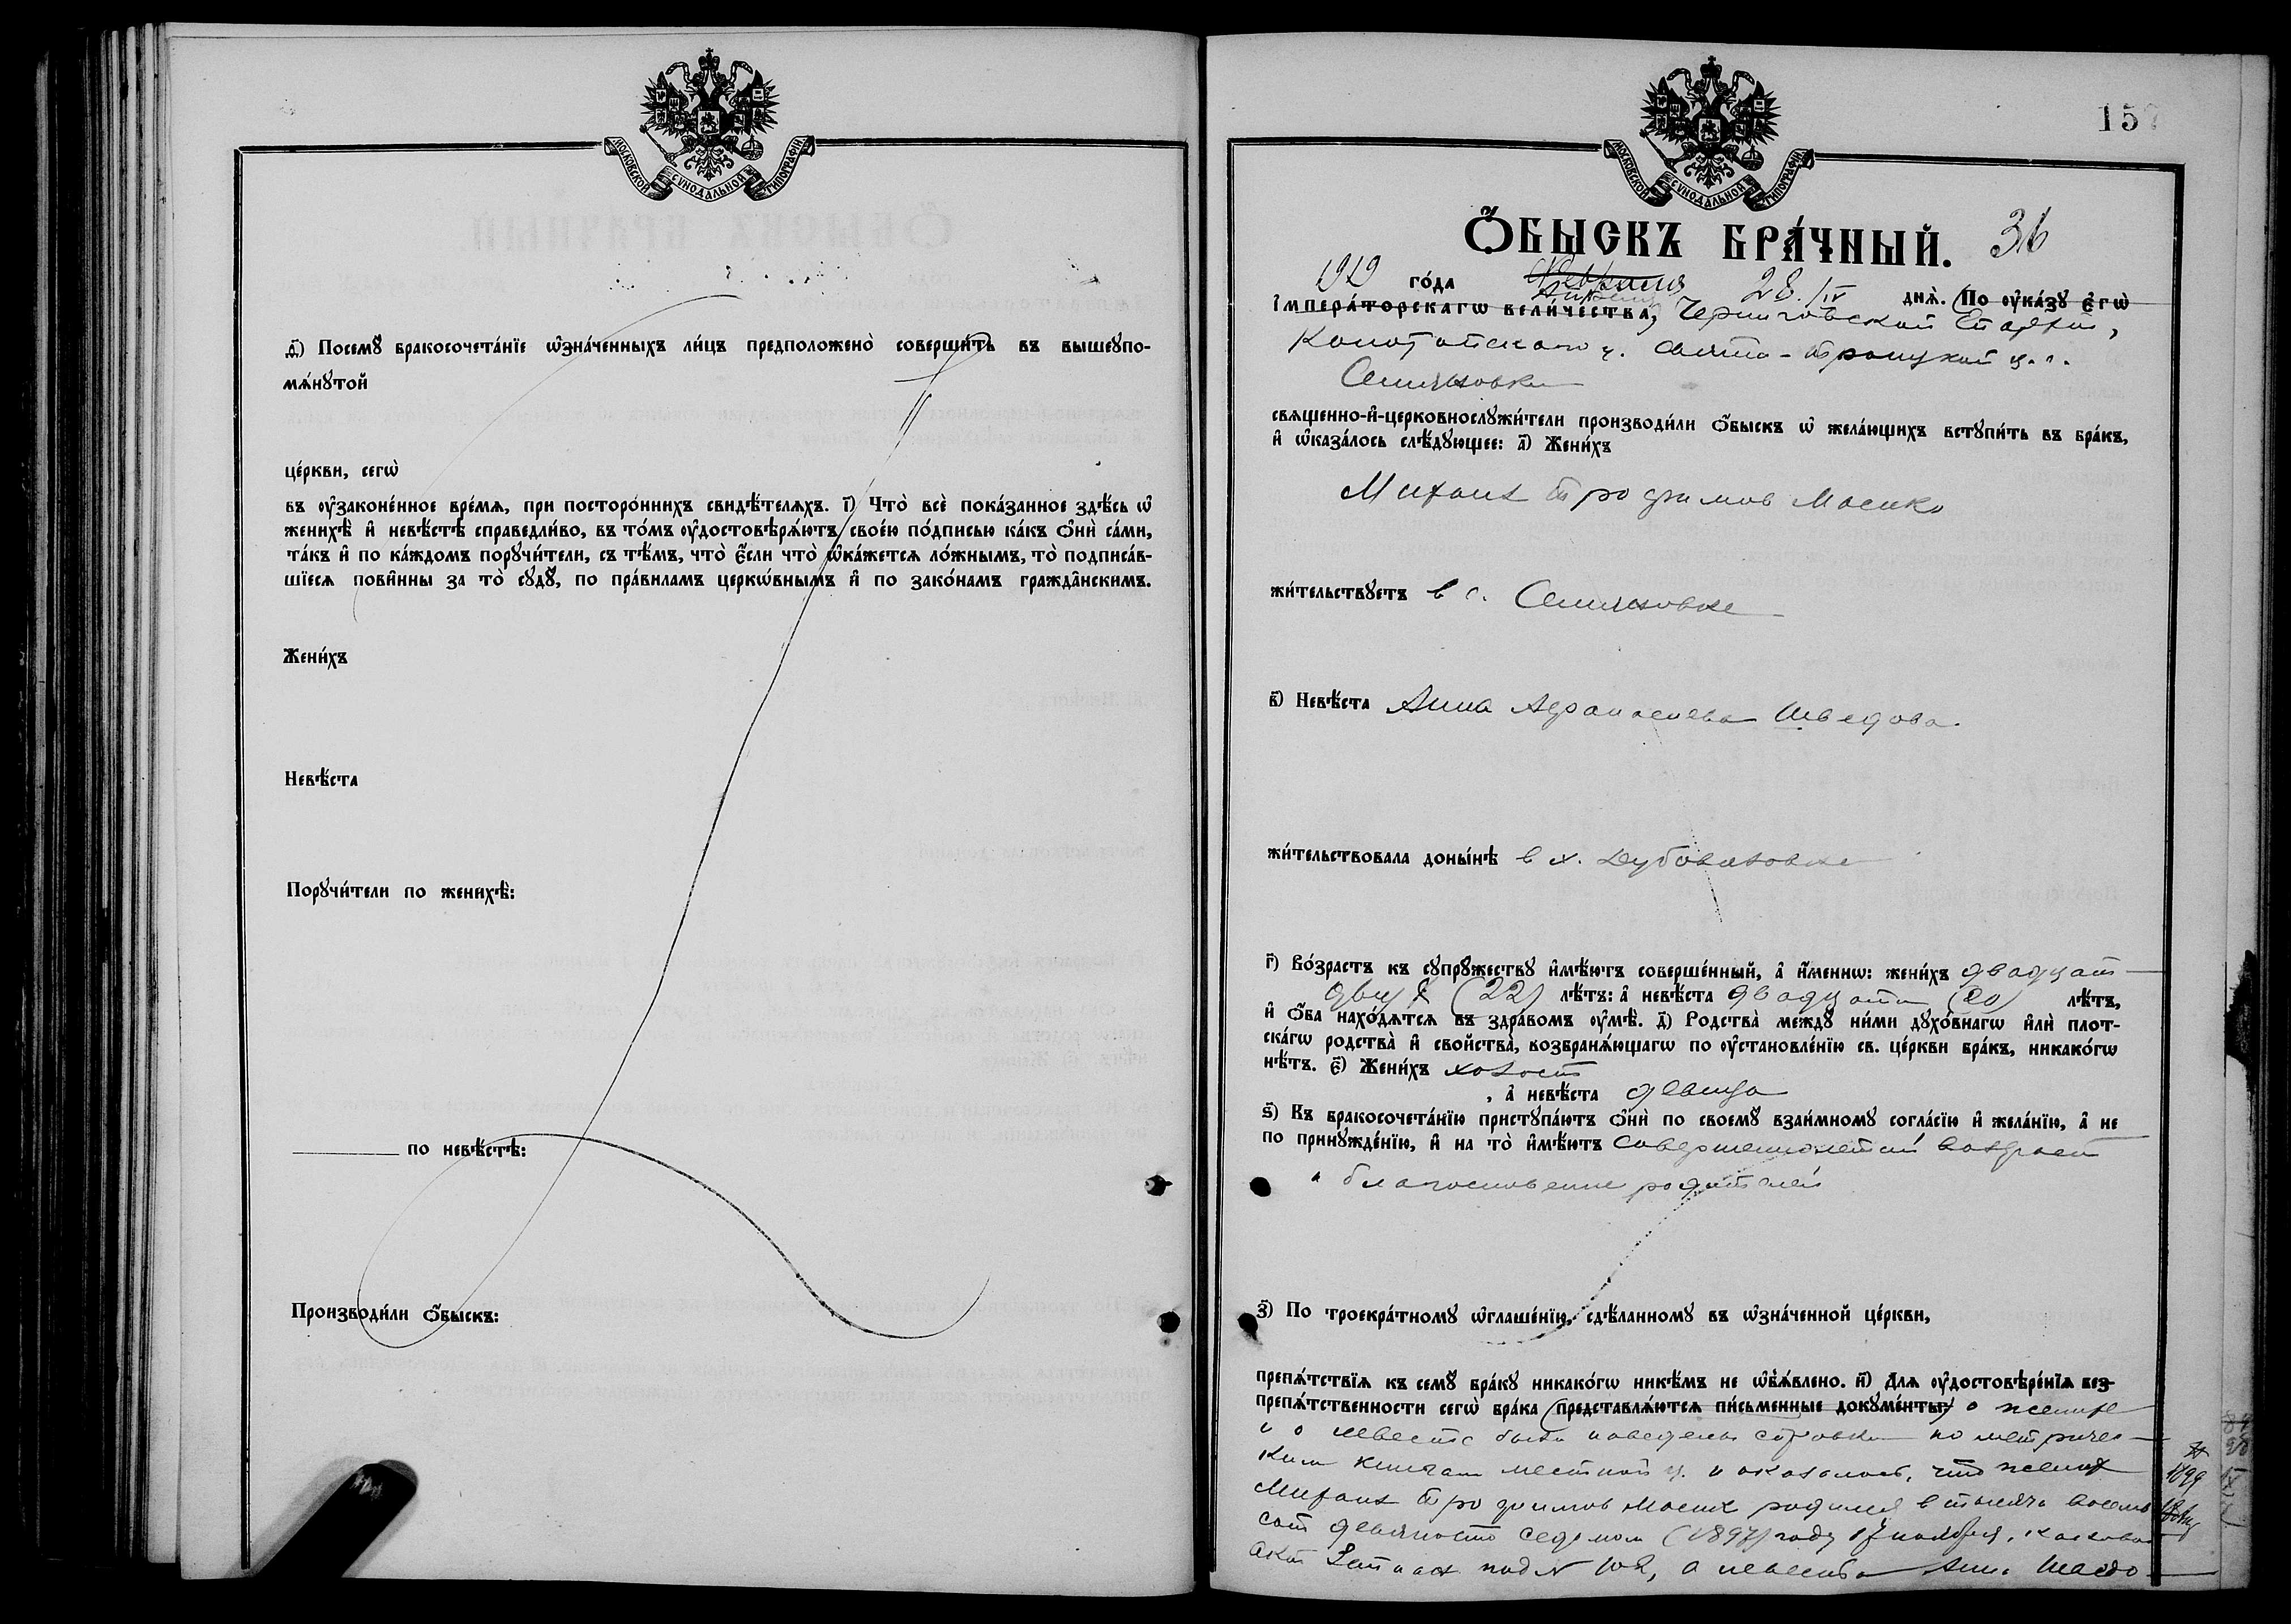 МОСКОВСКОЙ СѴНОДАЛЬНОЙ ТИПОГРАФІИ
д҃і) Посемꙋ̀ бракосочета́нїе ѡ҆зна́ченныхъ ли́цъ предположено̀ соверши́ть въ вышеꙋпо-
мѧ́нꙋтой
це́ркви, сегѡ̀
въ ᲂу҆законе́нное вре́мѧ, при посторо́ннихъ свидѣ́телѧхъ. і҃) Что̀ всѐ пока́занное здѣ́сь ѡ҆
женихѣ̀ и҆ невѣ́стѣ справедли́во, въ то́мъ ᲂу҆достовѣрѧ́ютъ свое́ю по́дписью ка́къ ѻ҆нѝ са́ми,
та́къ и҆ по ка́ждомъ порꙋчи́тели, съ тѣ́мъ, что̀ є҆́сли что̀ ѡ҆ка́жетсѧ ло́жнымъ, то̀ подписа́в-
шїесѧ пови́нны за то̀ сꙋдꙋ̀, по пра́виламъ церко́внымъ и҆ по зако́намъ гражда́нскимъ.
Жени́хъ
Невѣ́ста
Порꙋчи́тели по женихѣ̀:
по невѣ́стѣ:
Производи́ли ѻ҆́быскъ:
МОСКОВСКОЙ СѴНОДАЛЬНОЙ ТИПОГРАФІИ
157
Ѻ҆́БЫСКЪ БРА́ЧНЫЙ. 36
1919 го́да Февраля Апреля 28/IV днѧ̀. (По ᲂу҆ка́зꙋ є҆гѡ̀
і҆мпера́торскагѡ вели́чества,) Черниговской Епархии,
Конотопского у. Свято-Троицкой ц. с.
Семяновки
свѧщенно-и҆-церковнослꙋжи́тели производи́ли ѻ҆́быскъ ѡ҆ жела́ющихъ встꙋпи́ть въ бра́къ,
и҆ ѡ҆каза́лось слѣ́дꙋющее: а҃) Жени́хъ
Михаил Трофимов Мосико
жи́тельствꙋетъ в с. Семяновке
в҃) Невѣ́ста Анна Афанасиева Шведова
жи́тельствовала доны́нѣ в х. Дубовязовке
г҃) Во́зрастъ къ сꙋпрꙋ́жествꙋ и҆мѣ́ютъ соверше́нный, а҆ и҆́менно: жени́хъ двадцати
двух (22) лѣ́тъ: а҆ невѣ́ста двадцати (20) лѣ́тъ,
и҆ ѻ҆́ба нахо́дѧтсѧ въ здра́вомъ ᲂу҆мѣ̀. д҃) Родства̀ междꙋ̀ ни́ми дꙋхо́внагѡ и҆лѝ плот-
ска́гѡ родства̀ и҆ сво́йства, возбранѧ́ющагѡ по ᲂу҆становле́нїю св. це́ркви бра́къ, никако́гѡ
нѣ́тъ. є҃) Жени́хъ холост
, а҆ невѣ́ста девица
ѕ҃) Къ бракосочета́нїю пристꙋпа́ютъ ѻ҆нѝ по своемꙋ̀ взаи́мномꙋ согла́сїю и҆ жела́нїю, а҆ не
по принꙋжде́нїю, и҆ на то̀ и҆мѣ́ютъ совершеннолетний возраст
и благословение родителей
з҃) По троекра́тномꙋ ѡ҆глаше́нїю, сдѣ́ланномꙋ въ ѡ҆зна́ченной це́ркви,
препѧ́тствїѧ къ семꙋ̀ бра́кꙋ никако́гѡ никѣ́мъ не ѡ҆бъѧ́влено. и҃) Длѧ ᲂу҆достовѣре́нїѧ без-
препѧ́тственности сегѡ̀ бра́ка (представлѧ́ютсѧ пи́сьменные докꙋме́нты:) о женихе
и о невесте были наведены справки по метричес-
ким книгам местной ц. и оказалось, что жених
Михаил Трофимов Мосик родился в тысяча восемь
сот девяносто седьмом (1897) году 17 ноября, каковой
акт записан под № 102, а невеста Анна Шведо
1899